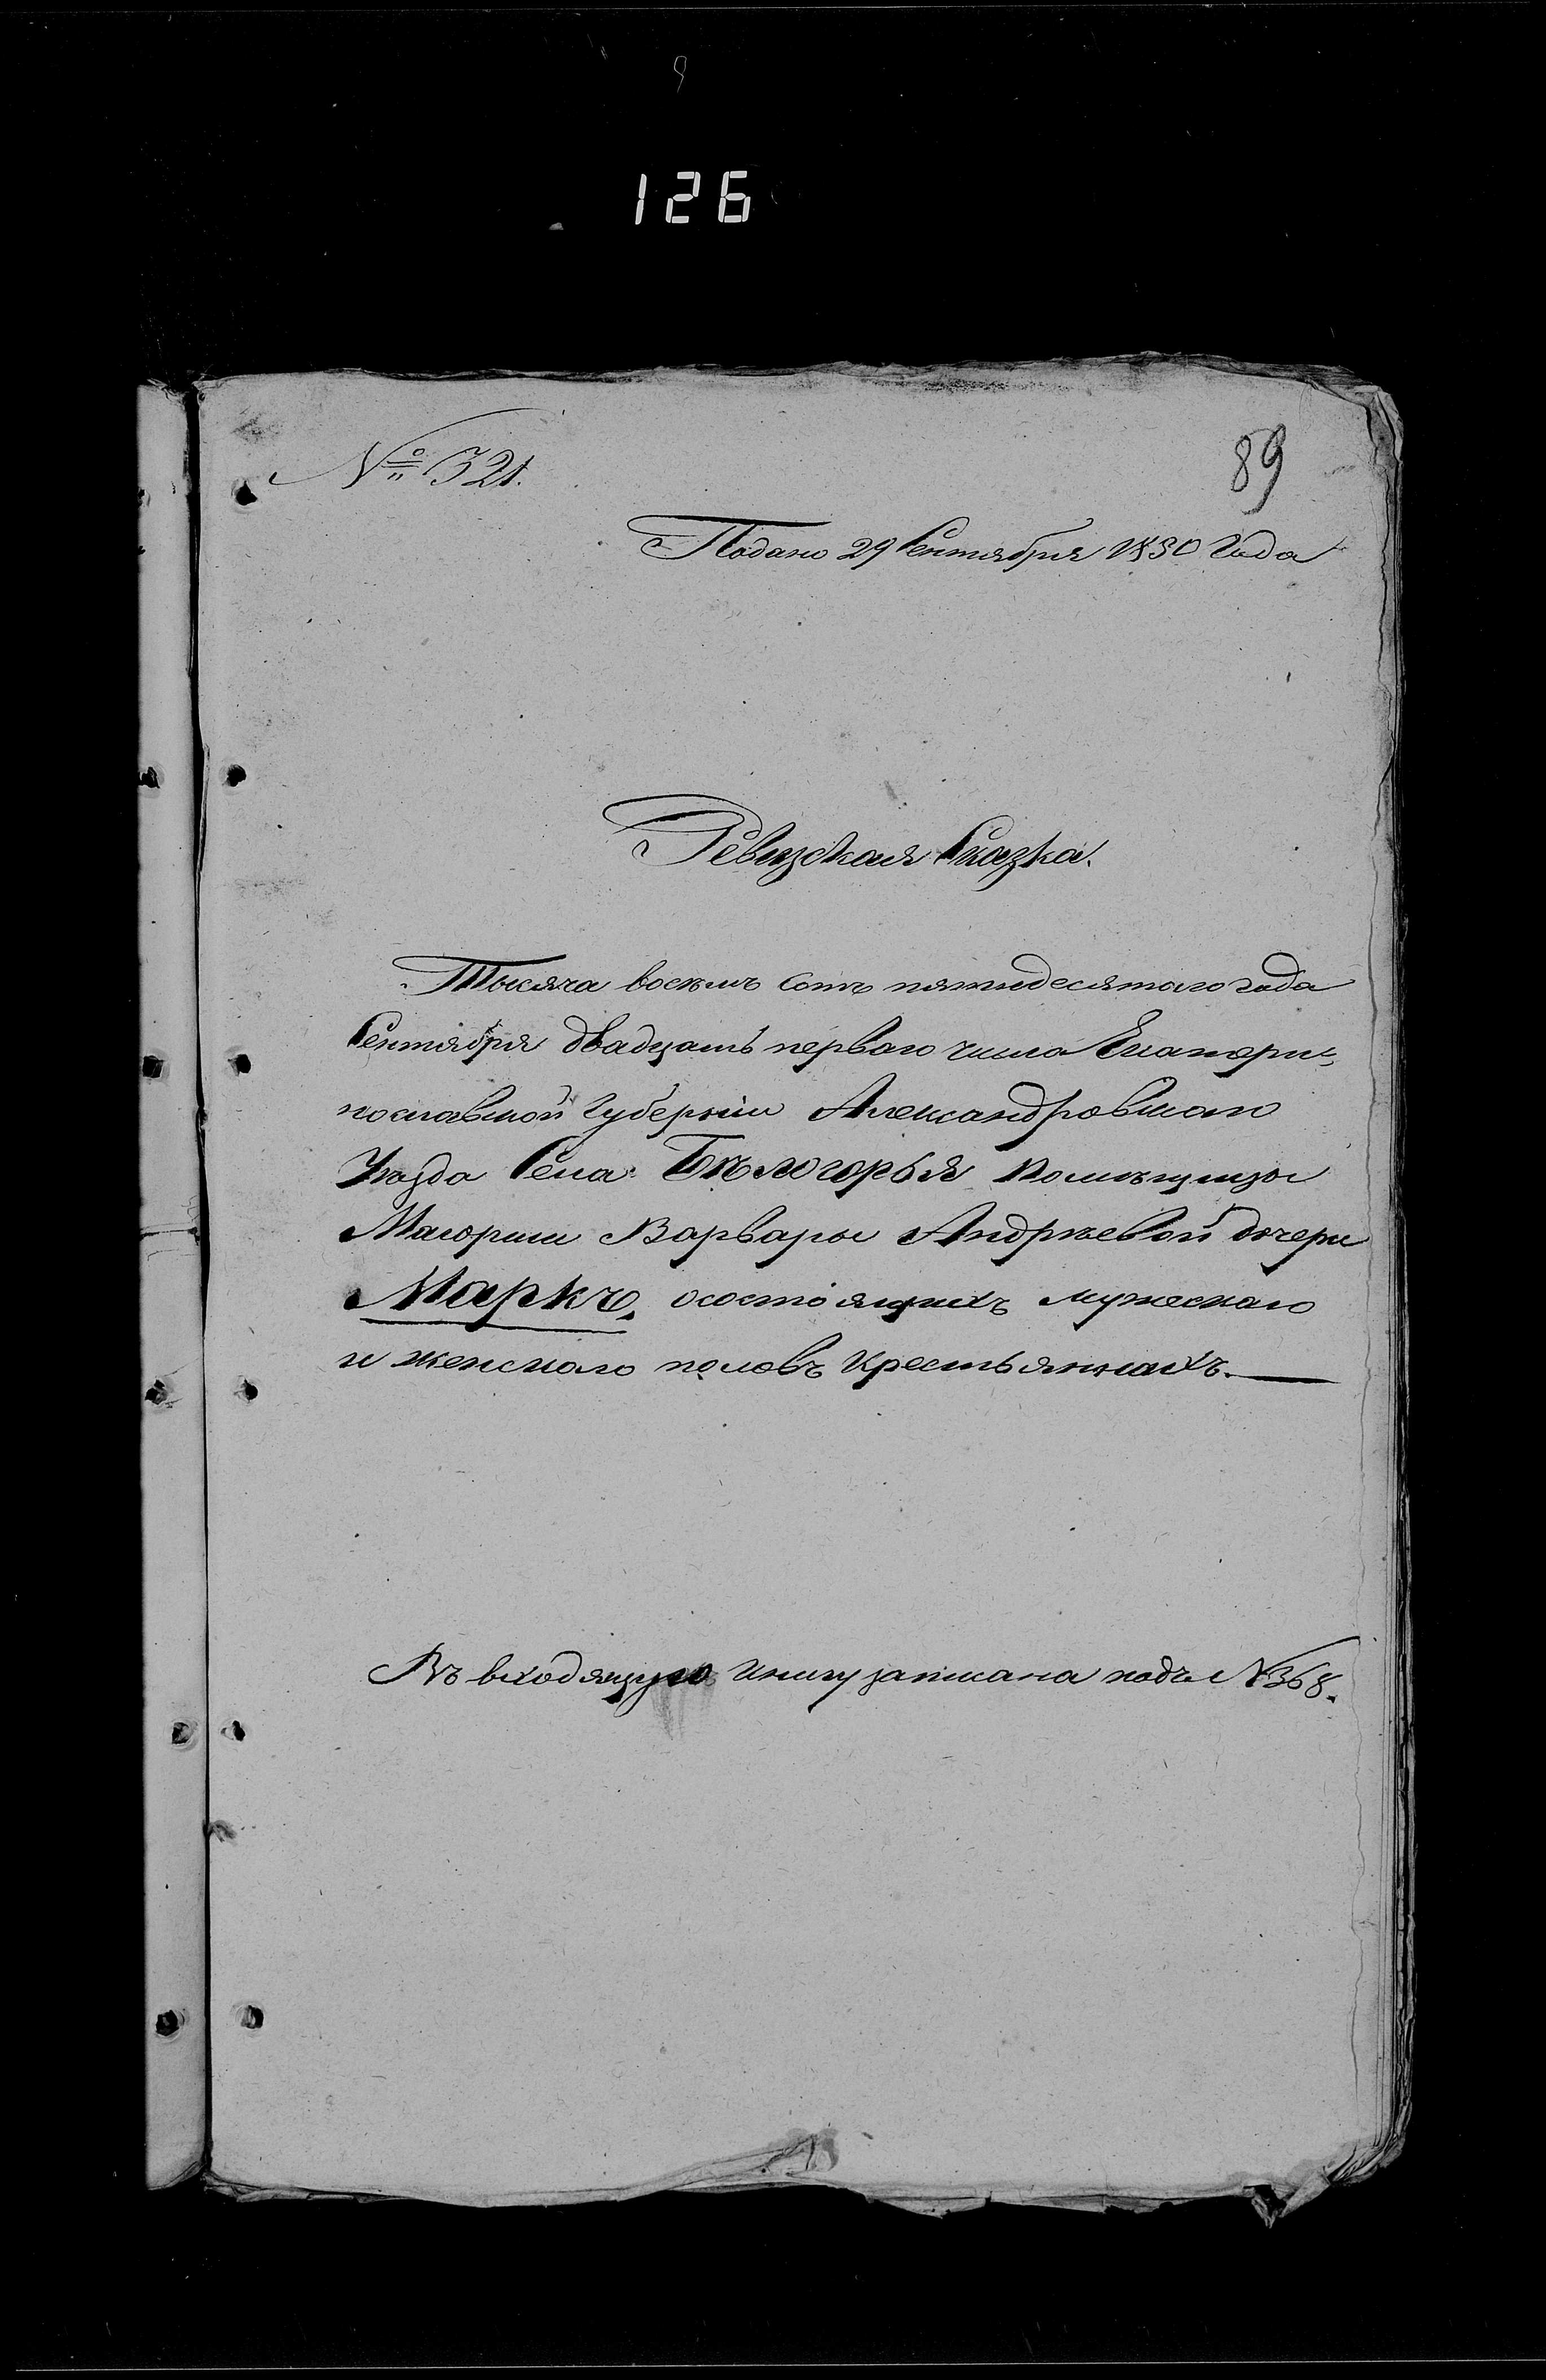 9
126
№ 321.
89
Подано 29 Сентября 1850 Года
Ревизская Сказка.
Тысяча восемь сотъ пятидесятаго года
Сентября двадцать перваго числа Екатери„
нославской Губерніи Александровскаго
Уѣзда Села: Бѣлогорья Помѣщицы
Маіорши Варвары Андрѣевой дочери
Маркъ, осостоящихъ мужескаго
и женскаго половъ Крестьянахъ.
Въ входящую книгу записана подъ №368.